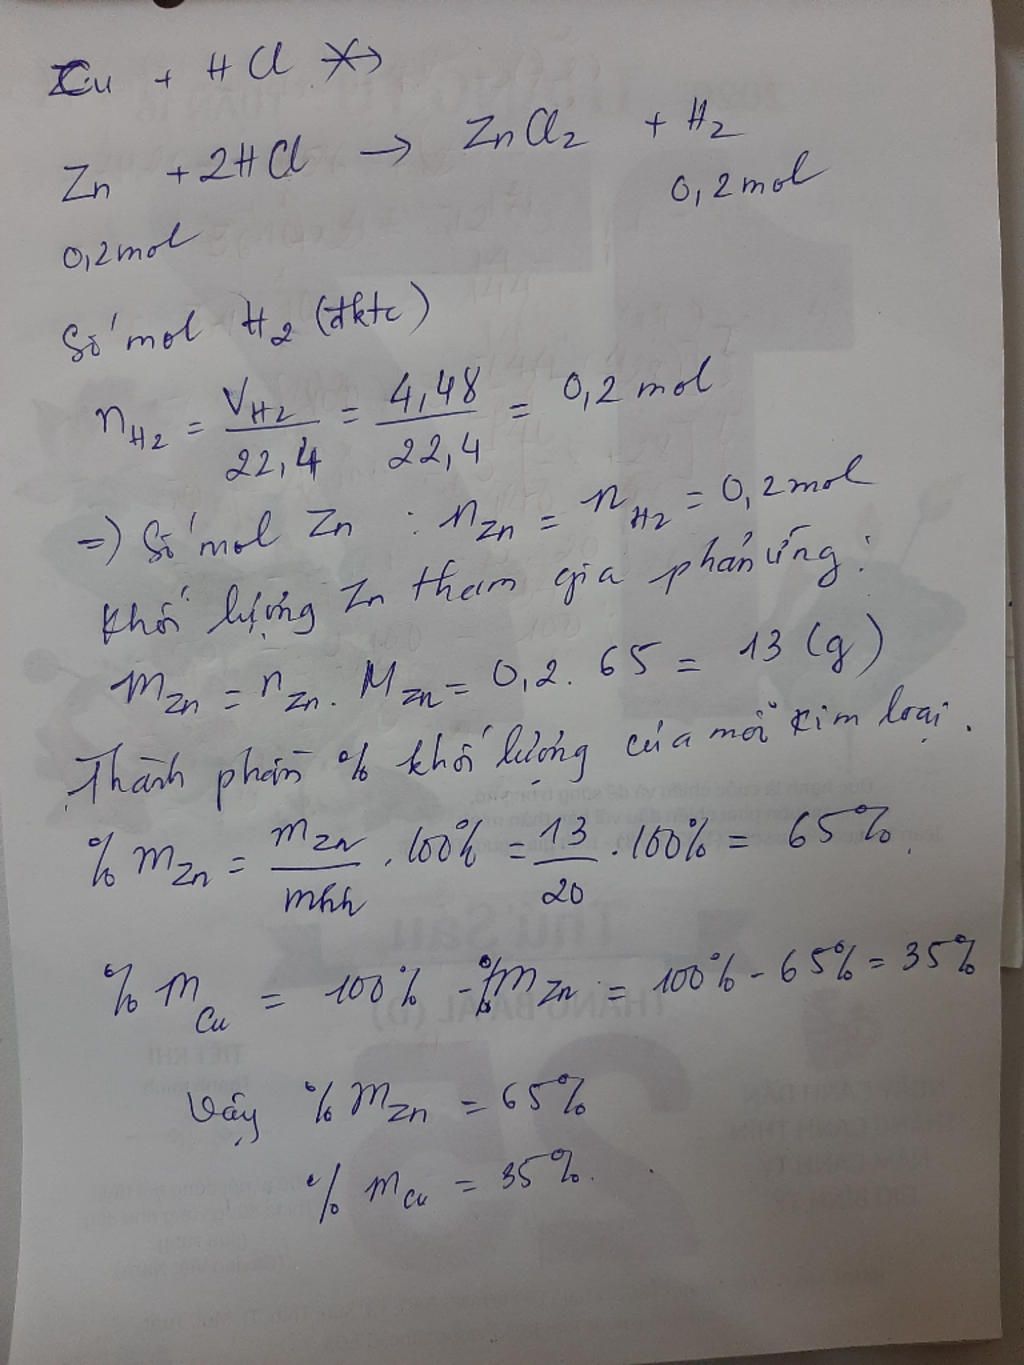 Cu + HCl ↛
Zn + 2HCl → ZnCl2 + H2
0,2mol 0,2mol
Số mol H2 (đktc)
nH2 = VH2/22,4 = 4,48/22,4 = 0,2 mol
=) Số mol Zn : nZn = nH2 = 0,2mol
Khối lượng Zn tham gia phản ứng:
mZn = nZn. MZn = 0,2. 65 = 13 (g)
Thành phần % khối lượng của mỗi kim loại.
% mZn = mZn/mhh . 100% = 13/20 . 100% = 65%.
% mCu = 100% - %mZn = 100% - 65% = 35%
Vậy % mZn = 65%
% mCu = 35%.